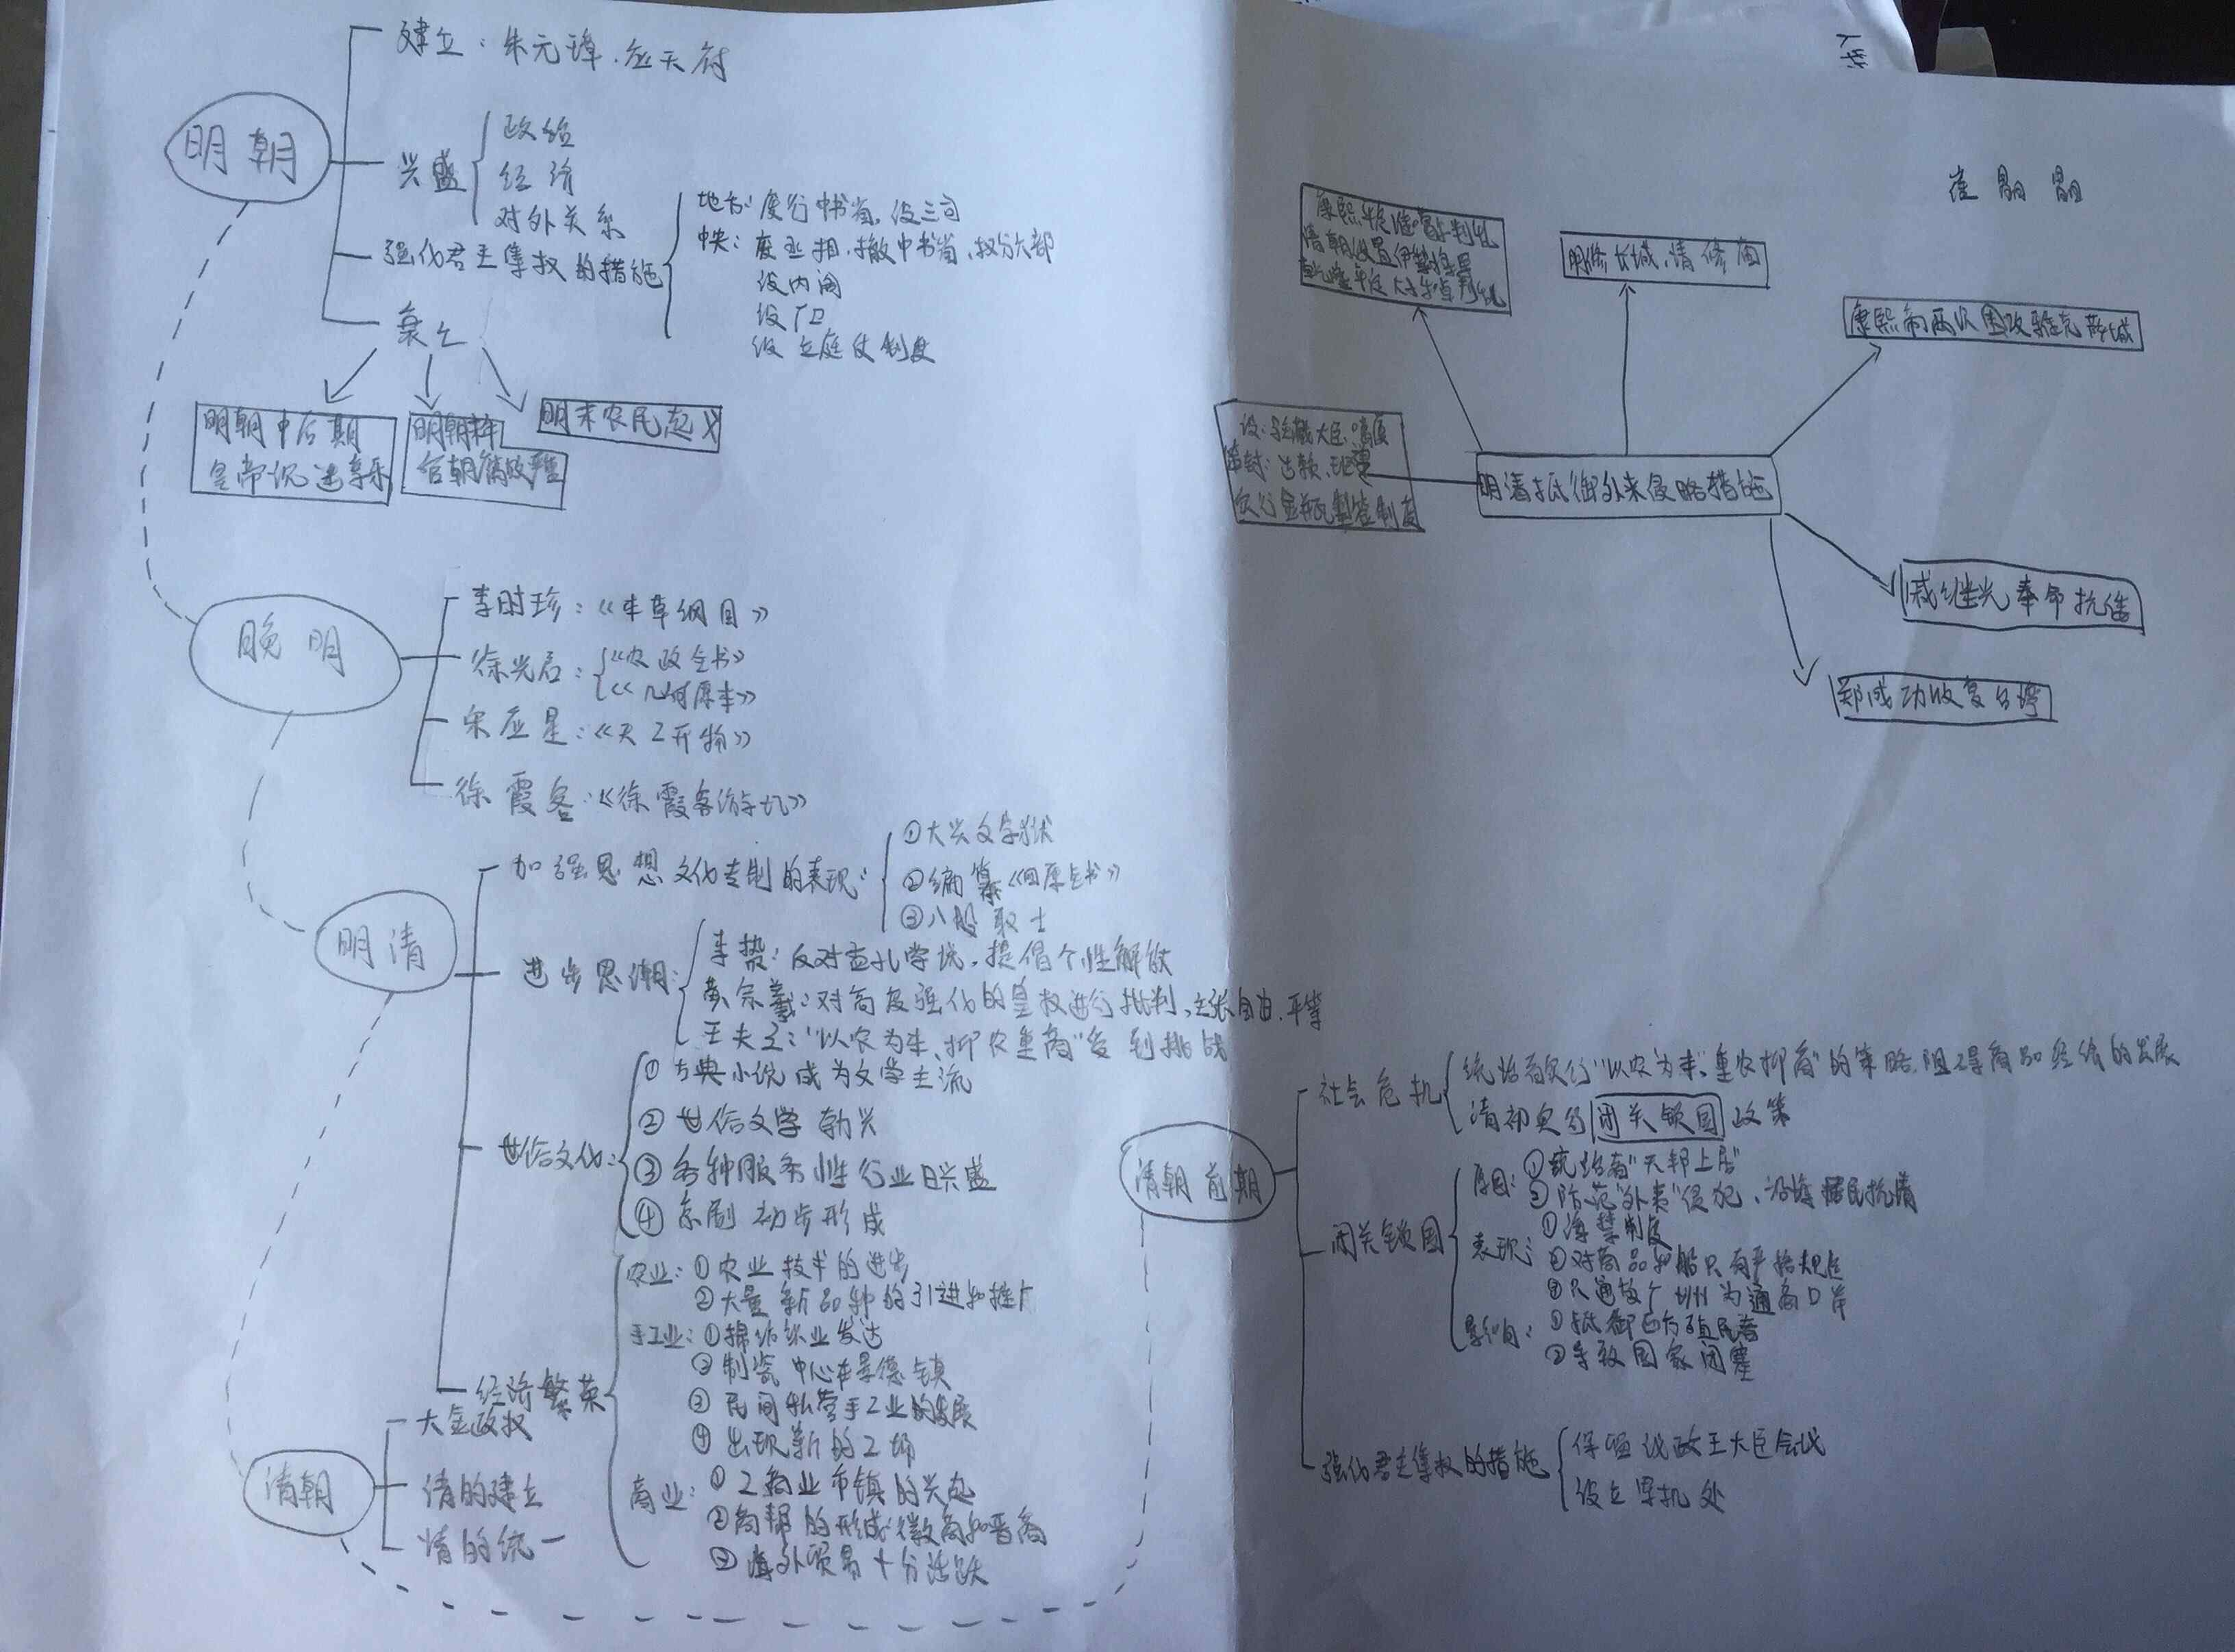 建立：朱元璋.应天府
明朝
兴盛
政治
经济
对外关系
强化君主集权的措施
地方：废行中书省，设三司
中央：废丞相，撤中书省，权分六部
设内阁
设厂卫
设立庭仗制度
衰亡
明朝中后期
皇帝沉迷享乐
明朝末年
明末农民起义
晚明
李时珍：《本草纲目》
徐光启：
《农政全书》
《几何原本》
宋应星：《天工开物》
徐霞客：《徐霞客游记》
明清
加强思想文化专制的表现：
①大兴文字狱
②编纂《四库全书》
③八股取士
进步思潮：
李贽：反对孟孔学说，提倡个性解放
黄宗羲：对高度强化的皇权进行批判，主张自由.平等
王夫之："以农为本、抑农重商"受到挑战
世俗文化：
①古典小说成为文学主流
②世俗文学勃兴
③各种服务性行业日兴盛
④京剧初步形成
经济繁荣
农业：①农业技术的进步
②大量新品种的引进和推广
手工业：①棉纺织业发达
②制瓷中心在景德镇
③民间私营手工业的发展
④出现新的工场
商业：①工商业市镇的兴起
②商帮的形成：徽商和晋商
③海外贸易十分活跃
清朝
大金政权
清的建立
清的统一
崔
明修长城，清修庙
康熙帝两次围攻雅克萨城
明清抵御外来侵略措施
设：驻藏大臣
实行金瓶掣签制度
戚继光奉命抗倭
郑成功收复台湾
清朝前期
社会危机
统治者实行"以农为本"，重农抑商"的策略，阻碍商品经济的发展
清初实行闭关锁国政策
闭关锁国
原因：①统治者"天邦上居"
②防范"外类"侵犯，沿海居民抗清
表现：①海禁制度
②对商品和船只有严格规定
③只通放广州为通商口岸
影响：①抵御西方殖民者
②导致国家闭塞
强化君主集权的措施
保留议政王大臣会议
设立军机处